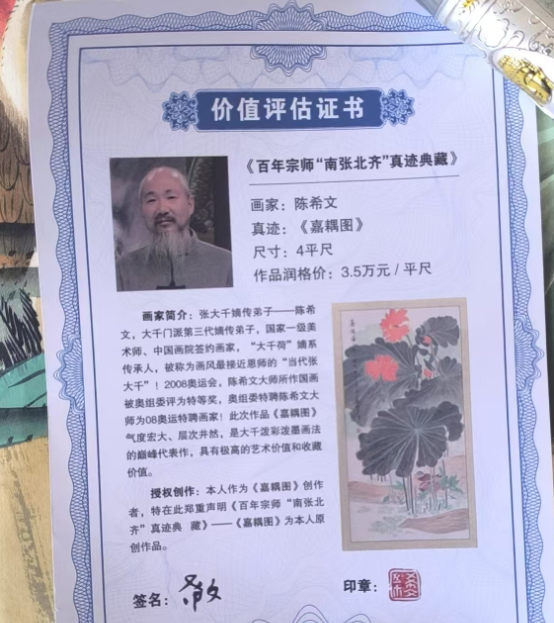 价值评估证书
《百年宗师“南张北齐”真迹典藏》
画家：陈希文
真迹：《嘉耦图》
尺寸：4平尺
作品润格价：3.5万元/平尺
画家简介：张大千嫡传弟子——陈希
文，大千门派第三代嫡传弟子，国家一级美
术师、中国画院签约画家，“大千荷”嫡系
传承人，被称为画风最接近恩师的“当代张
大千”！2008奥运会，陈希文大师所作国画
被奥组委评为特等奖，奥组委特聘陈希文大
师为08奥运特聘画家！此次作品《嘉耦图》
气度宏大、层次井然，是大千泼彩泼墨画法
的巅峰代表作，具有极高的艺术价值和收藏
价值。
授权创作：本人作为《嘉耦图》创作
者，特在此郑重声明《百年宗师“南张北
齐”真迹典 藏》——《嘉耦图》为本人原
创作品。
签名：
印章：